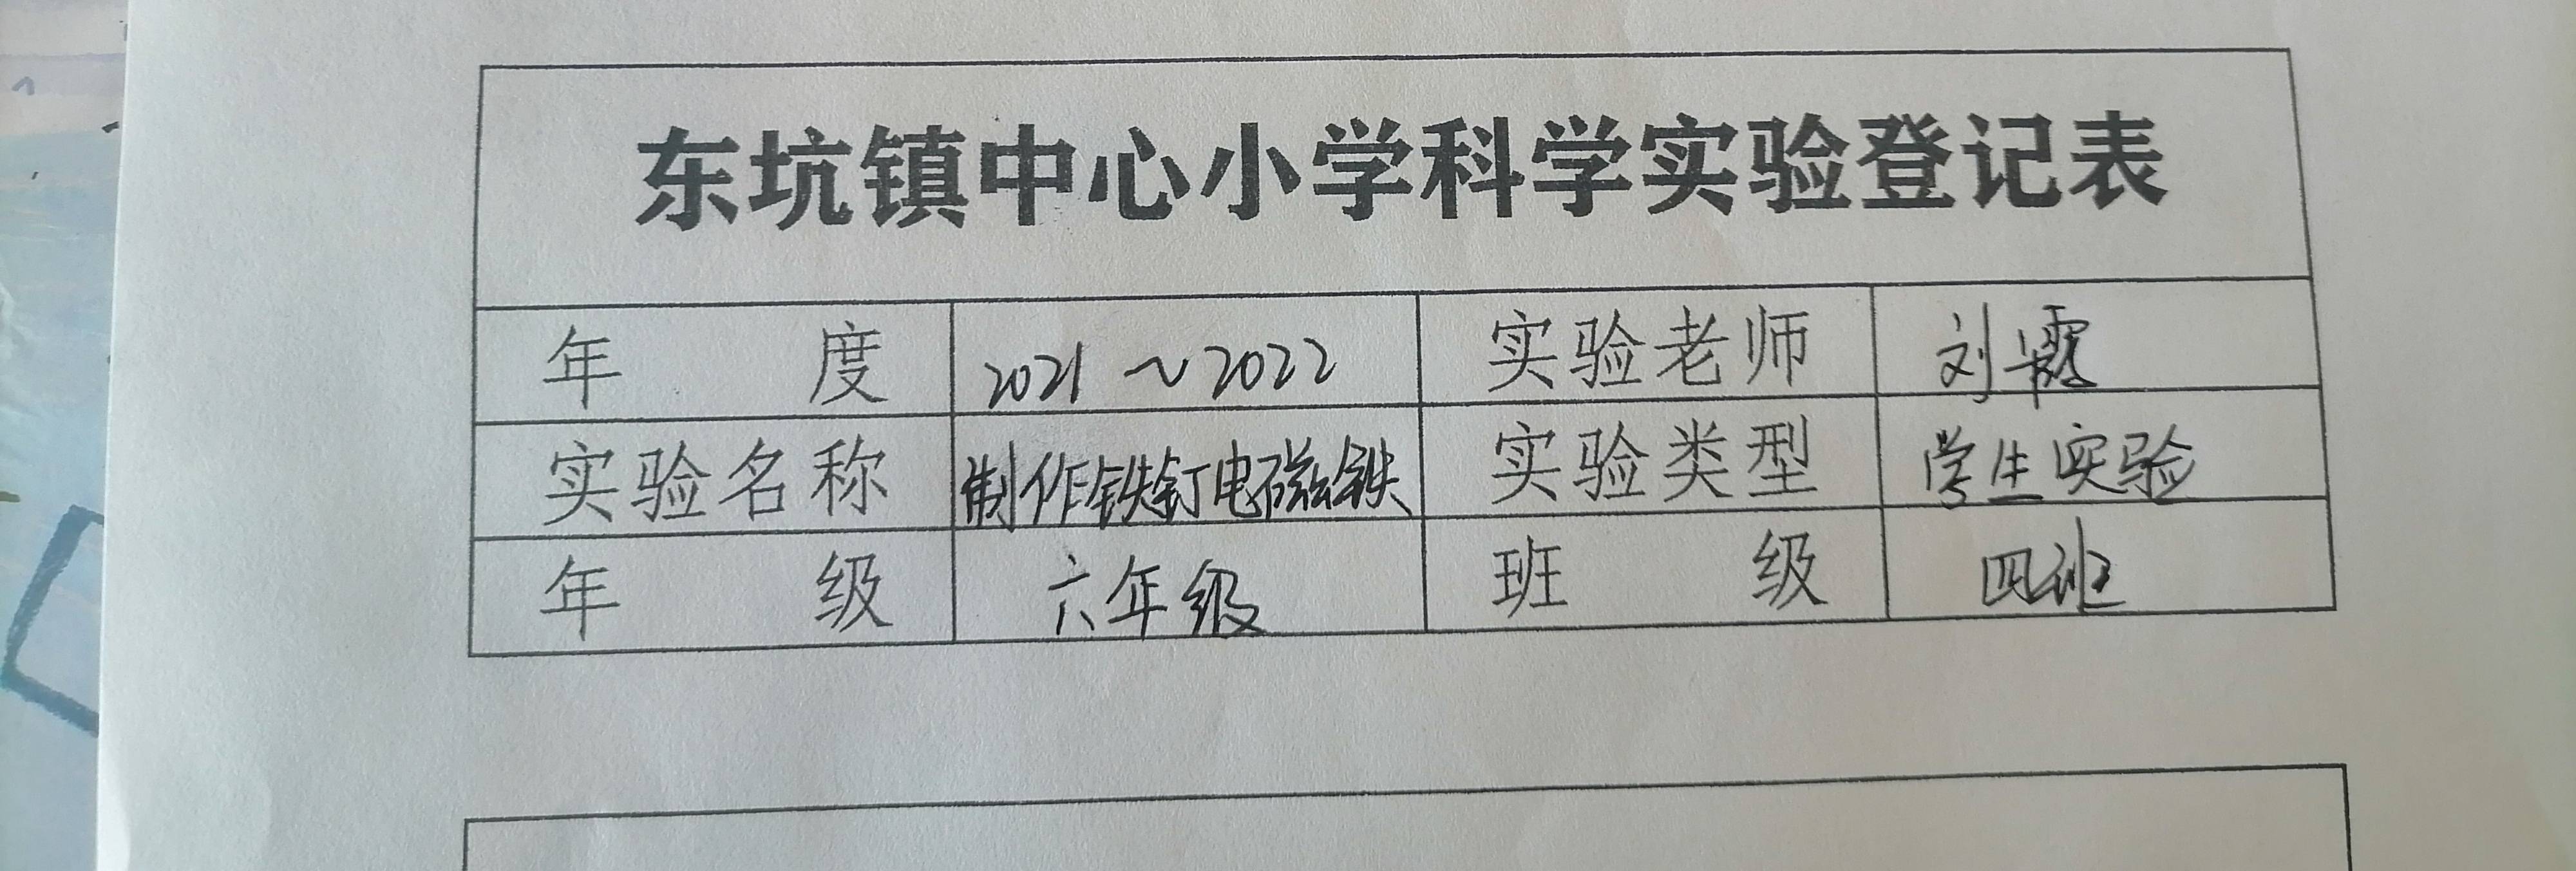 东坑镇中心小学科学实验登记表
年 度 2021~2022 实验老师 刘
实验名称 制作铁钉电磁铁 实验类型 学生实验
年 级 六年级 班 级 四班